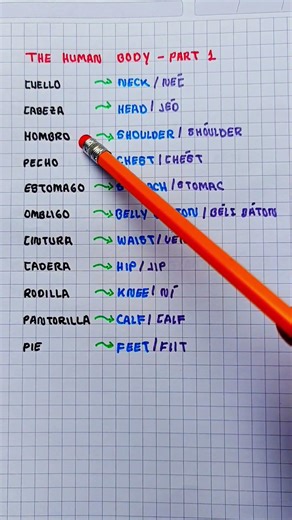 THE HUMAN BODY - PART 1
CUELLO → NECK / NEC
CABEZA → HEAD / JED
HOMBRO → SHOULDER / SHÓULDER
PECHO → CHEST / CHÉST
ESTOMAGO → / STOMAC
OMBLIGO → BELLY / BÉLI BÁTON
CINTURA → WAIST /
CADERA → HIP / JIP
RODILLA → KNEE / NÍ
PANTORILLA → CALF / CALF
PIE → FEET / FIIT